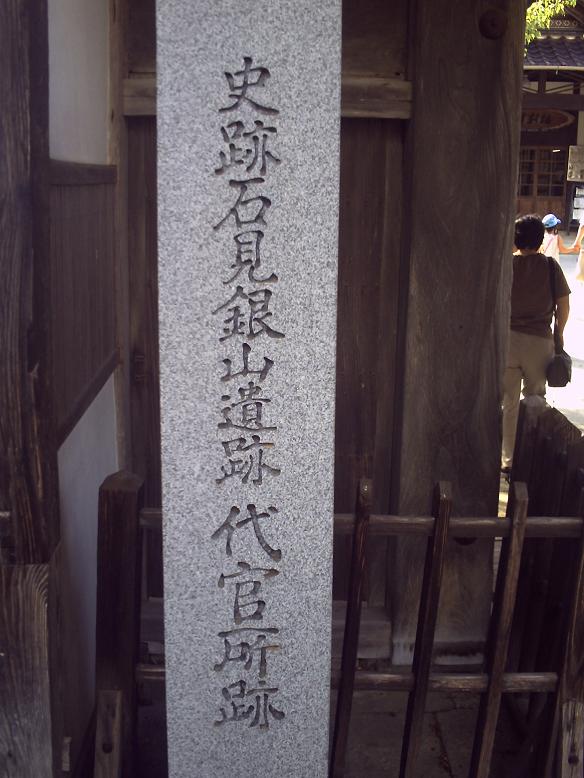 史跡石見銀山遺跡 代官所跡